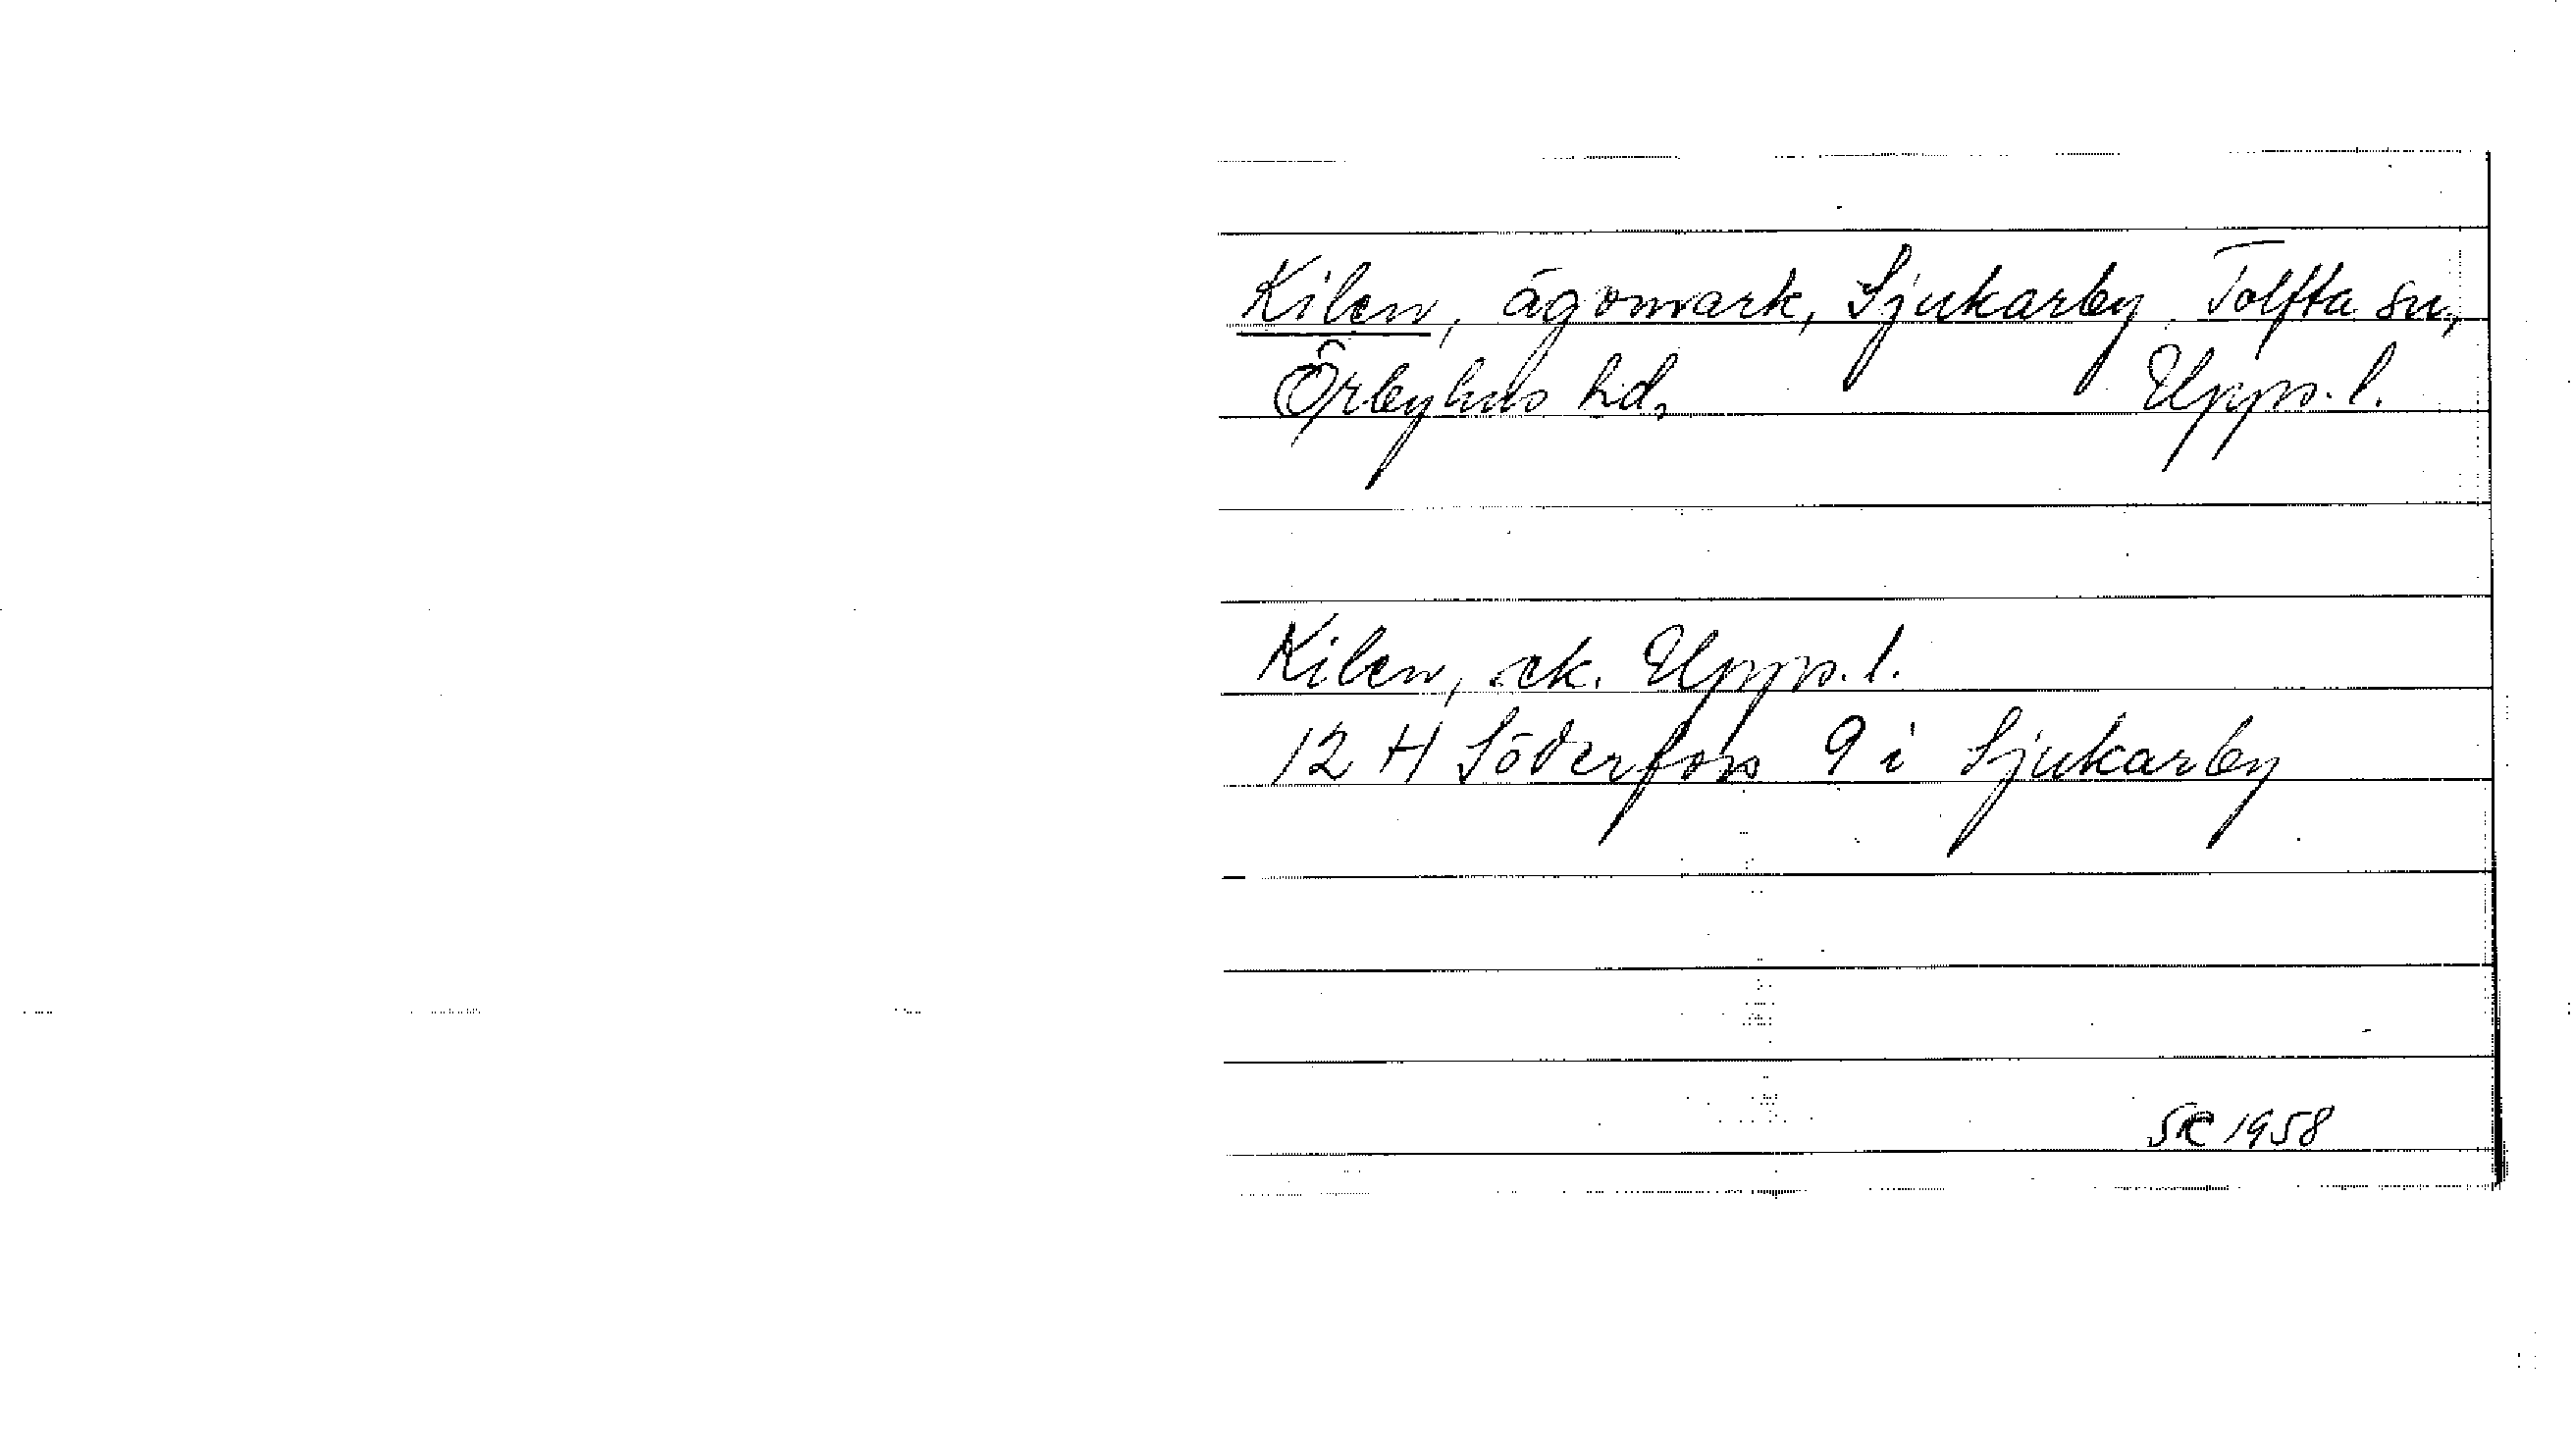 Kilen, ägomark, Sjukarby, Tolfta sn,
Örbyhus hd, Upps. l.
Kilen, ek. Upps. l.
12 H Söderfors 9 i Sjukarby
SC 1958